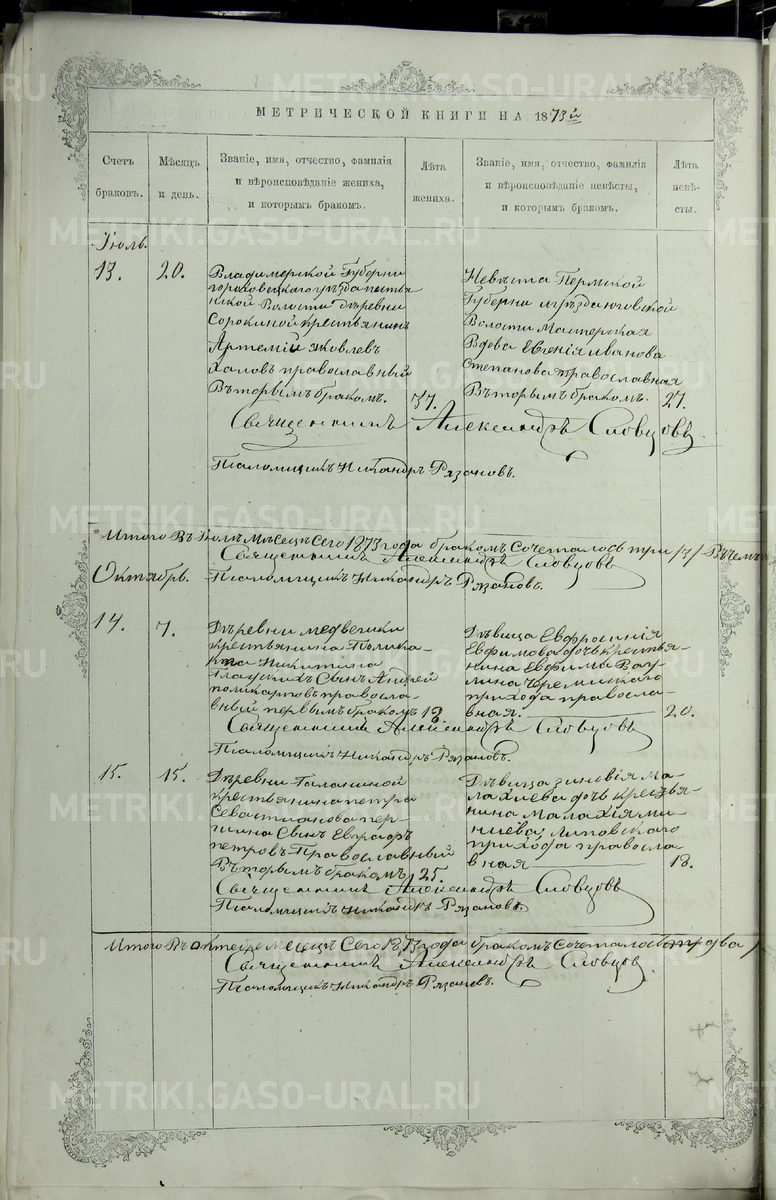 МЕТРИЧЕСКОЙ КНИГИ НА 1873й
Счетъ браковъ.
Мѣсяцъ и день.
Званіе, имя, отчество, фамилія и вѣроисповѣданіе жениха, и которымъ бракомъ.
Лѣта жениха.
Званіе, имя, отчество, фамилія и вѣроисповѣданіе невѣсты, и которымъ бракомъ.
Лѣта невѣсты.
Іюль.
13. 20.
Владимерской Губерни
гороховецкаго уѣзда
никой Волости Дѣревни
Сорокиной крестьянинъ
Артемій Яковлевъ
Халовъ православный
Вторымъ бракомъ. 37.
Невѣста Пермской
Губерни и уѣзда юговской
Волости Мастерская
Вдова Евгенія Иванова
Степанова православная
Вторымъ бракомъ. 27.
Священникъ Александръ Словцовъ.
Псаломщикъ Никандръ Рязановъ.
Итого Въ Іюлѣ Мѣсецѣ Сего 1873 года бракомъ Сочеталось три /7/ Въ чемъ
Священникъ Александръ Словцовъ
Октябрь. Псаломщикъ Никандръ Рязановъ.
14. 7.
Дѣревни медвѣшки
крестьянина Полика-
Никитина
Гладкихъ Сынъ Андрей
поликарповъ правосла-
вный первымъ бракомъ 18
Дѣвица Евфросинія
Евфимова дочь крестья-
нина Евфима Вау-
лина Черемисскаго
прихода правосла-
вная. 20.
Священникъ Александръ Словцовъ
Псаломщикъ Никандръ Рязановъ.
15. 15.
Дѣревни Галаниной
крестьянина петра
Севастианова пер-
шина Сынъ Евграфъ
петровъ Православный
Вторымъ бракомъ 25.
Дѣвица зиновія Ма-
лахиева дочь крестья-
нина Малахія ми-
ниева, Липовскаго
прихода правосла-
вная 18.
Священникъ Александръ Словцовъ
Псаломщикъ Никандръ Рязановъ.
Итого Въ мѣсецѣ Сего 1873 года бракомъ Сочеталось два
Священникъ Александръ Словцовъ
Псаломщикъ Никандръ Рязановъ.
METRIKI.GASO-URAL.RU